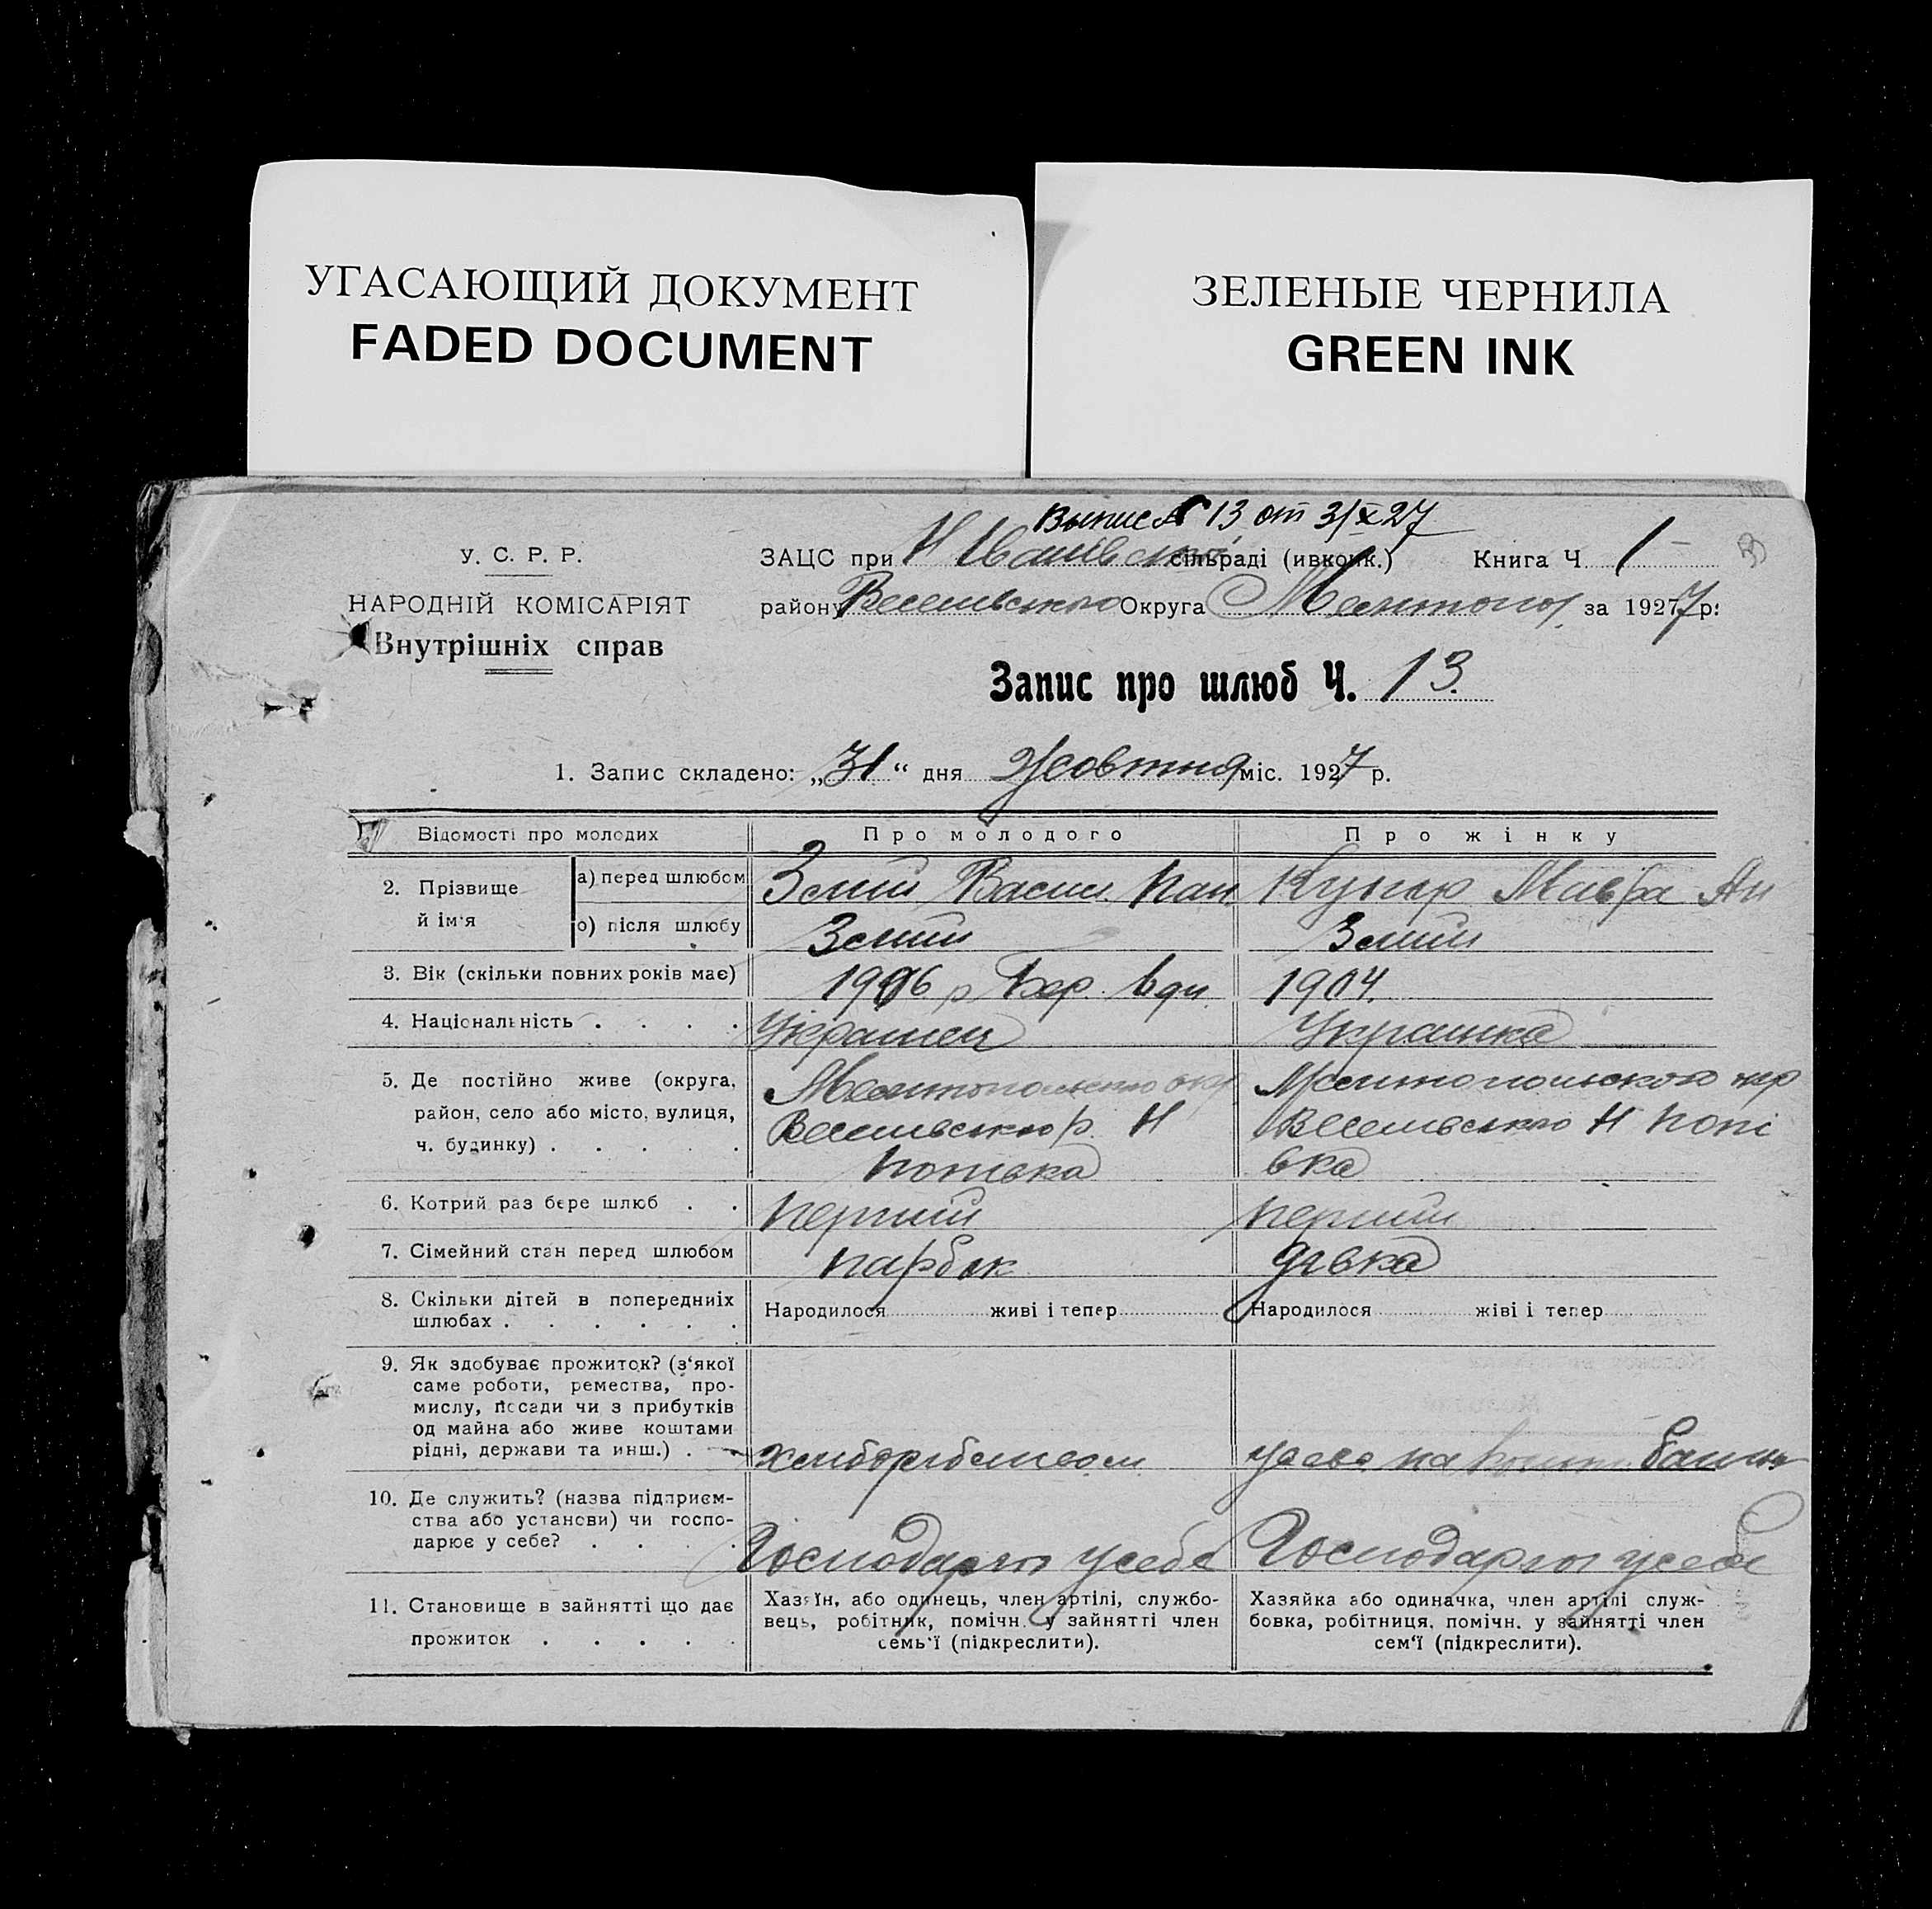 УГАСАЮЩИЙ ДОКУМЕНТ
FADED DOCUMENT
ЗЕЛЕНЫЕ ЧЕРНИЛА
GREEN INK
У. С. Р. Р.
НАРОДНІЙ КОМІСАРІЯТ
Внутрішніх справ
13 от 31/X 27
ЗАЦС при Н Іванівські сільраді (ивконк.) Книга Ч. 1
району Веселівського Округа Мелітопол. за 1927 р:
Запис про шлюб Ч. 13.
1. Запис складено: „31“ дня Жовтня міс. 1927 р.
Відомості про молодих
Про молодого
Про жінку
2. Прізвище й ім‘я
а) перед шлюбом
Змий Васил. Пан.
Мавра Ан
о) після шлюбу
Змии
Змии
3. Вік (скільки повних років має)
1906 р Бер.
1904.
4. Національність . . . .
Украинец
Украинка
5. Де постійно живе (округа,
район, село або місто, вулиця,
ч. будинку) . . . . .
Мелитопольского окр
Веселівською р. Н
Попівка
Мелитопольского окр
Веселівського Н Попі
вка
6. Котрий раз бере шлюб . .
Перший
Перший
7. Сімейний стан перед шлюбом
парбок
дівка
8. Скільки дітей в попередниіх
шлюбах . . . . . .
Народилося живі і тепер
Народилося жіві і тепер
9. Як здобуває прожиток? (з‘якої
саме роботи, ремества, про-
мислу, посади чи з прибутків
од майна або живе коштами
рідні, держави та инш.) .
на кошти
10. Де служить? (назва підприєм-
ства або установи) чи госпо-
дарює у себе? . . . .
Господарює усебе
Господарює усебе
11. Становище в зайнятті що дає
прожиток . . . . .
Хазяїн, або одинець, член артілі, службо-
вець, робітник, помічн. у зайнятті член
семь‘ї (підкреслити).
Хазяйка або одиначка, член артілі служ-
бовка, робітниця, помічн. у зайнятті член
сем‘ї (підкреслити).